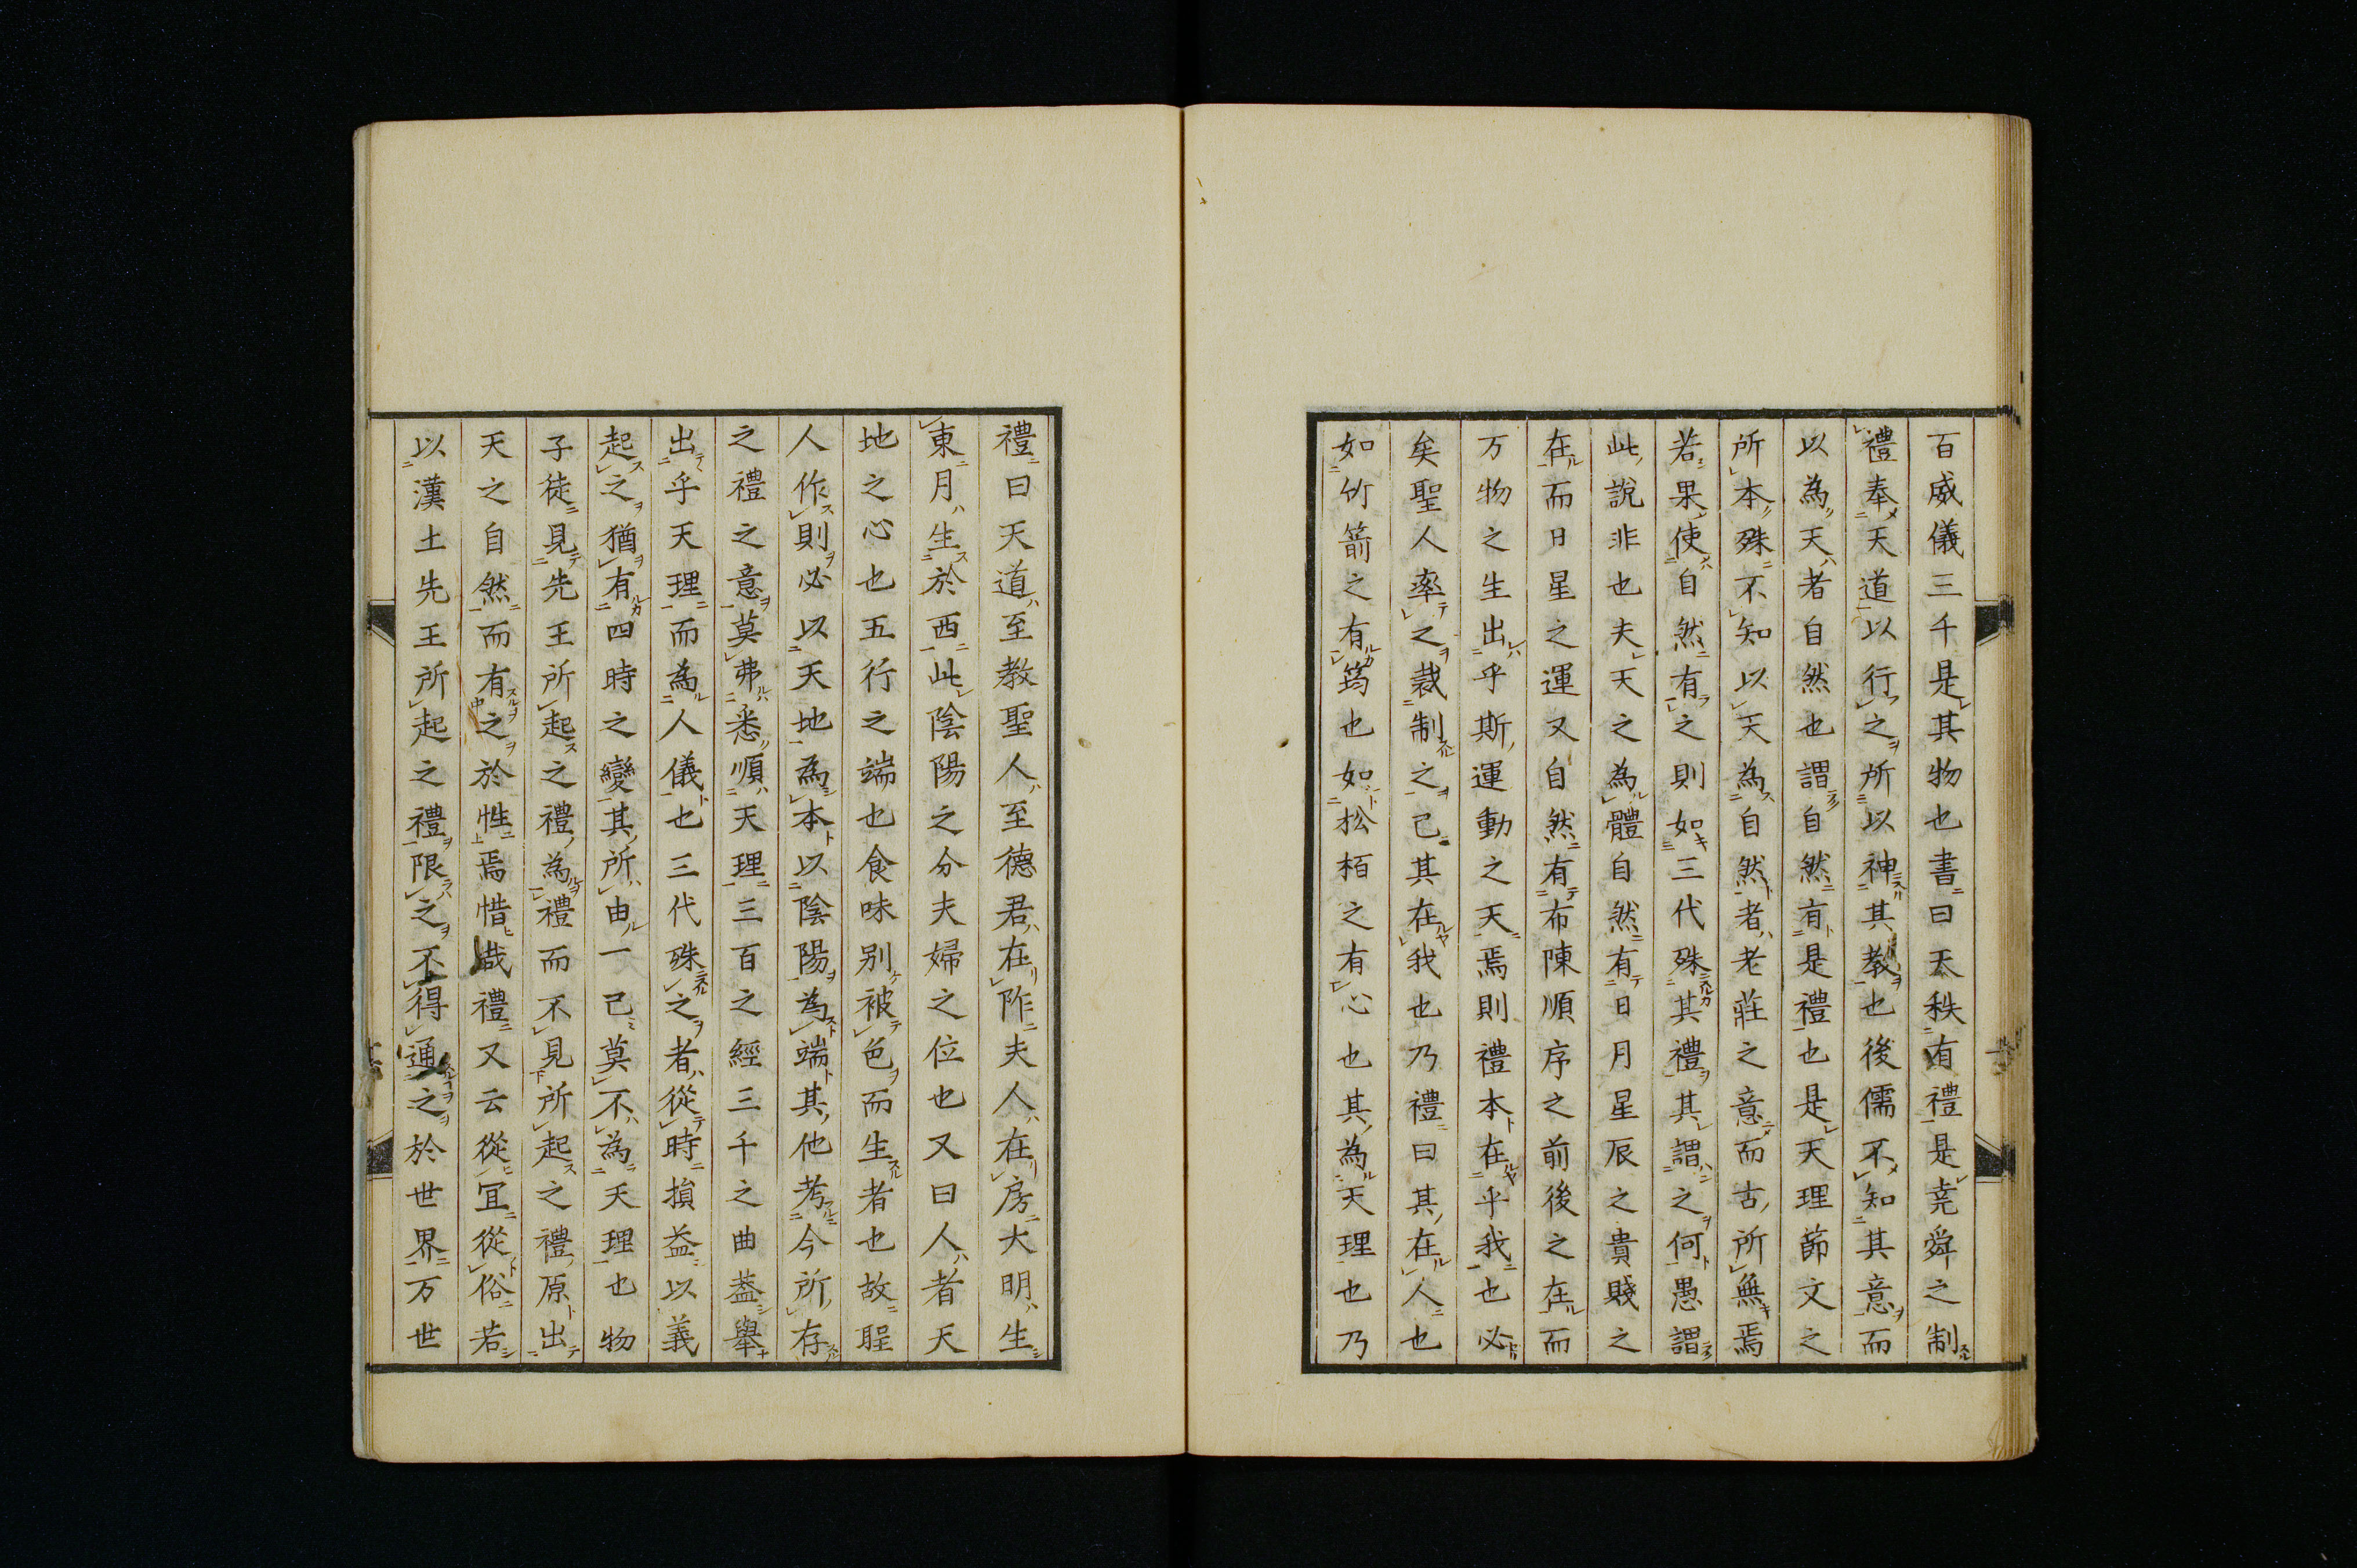 百威儀三千是其物也書曰天秩有禮是堯舜之制
禮奉天道以行之所以神其教也後儒不知其意而
以為天者自然也謂自然有是禮也是天理節文之
所本殊不知以天為自然者老莊之意而古所無焉
若果使自然有之則如三代殊其禮其謂之何愚謂
此說非也夫天之為體自然有日月星辰之貴賤之
在而日星之運又自然有布陳順序之前後之在而
万物之生出乎斯運動之天焉則禮本在乎我也必
矣聖人率之裁制之已其在我也乃禮曰其在人也
如竹箭之有筠也如松栢之有心也其為天理也乃
禮曰天道至教聖人至德君在阼夫人在房大明生
東月生於西此陰陽之分夫婦之位也又曰人者天
地之心也五行之端也食味別被色而生者也故聖
人作則必以天地為本以陰陽為端其他考今所存
之禮之意莫弗悉順天理三百之經三千之曲蓋舉
出乎天理而為人儀也三代殊之者從時損益以義
起之猶有四時之變其所由一己莫不為天理也物
子徒見先王所起之禮為禮而不見所起之禮原出
天之自然而有之於性焉惜哉禮又云從冝從俗若
以漢土先王所起之禮限之不得通之於世界万世